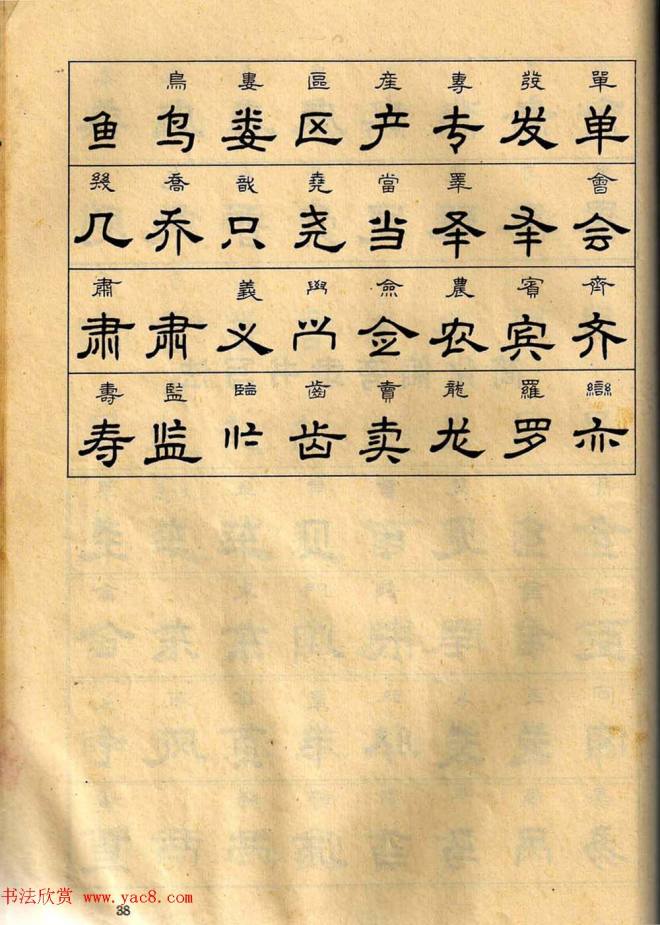 單發專産區婁鳥
单发专产区娄鸟鱼
會睪當堯戠喬幾
会圣圣当尧只乔几
齊賓農僉義肅
齐宾农佥义肃肃
䜌羅龍賣齒監壽
亦罗龙卖齿监寿
书法欣赏 www.yac8.com
38